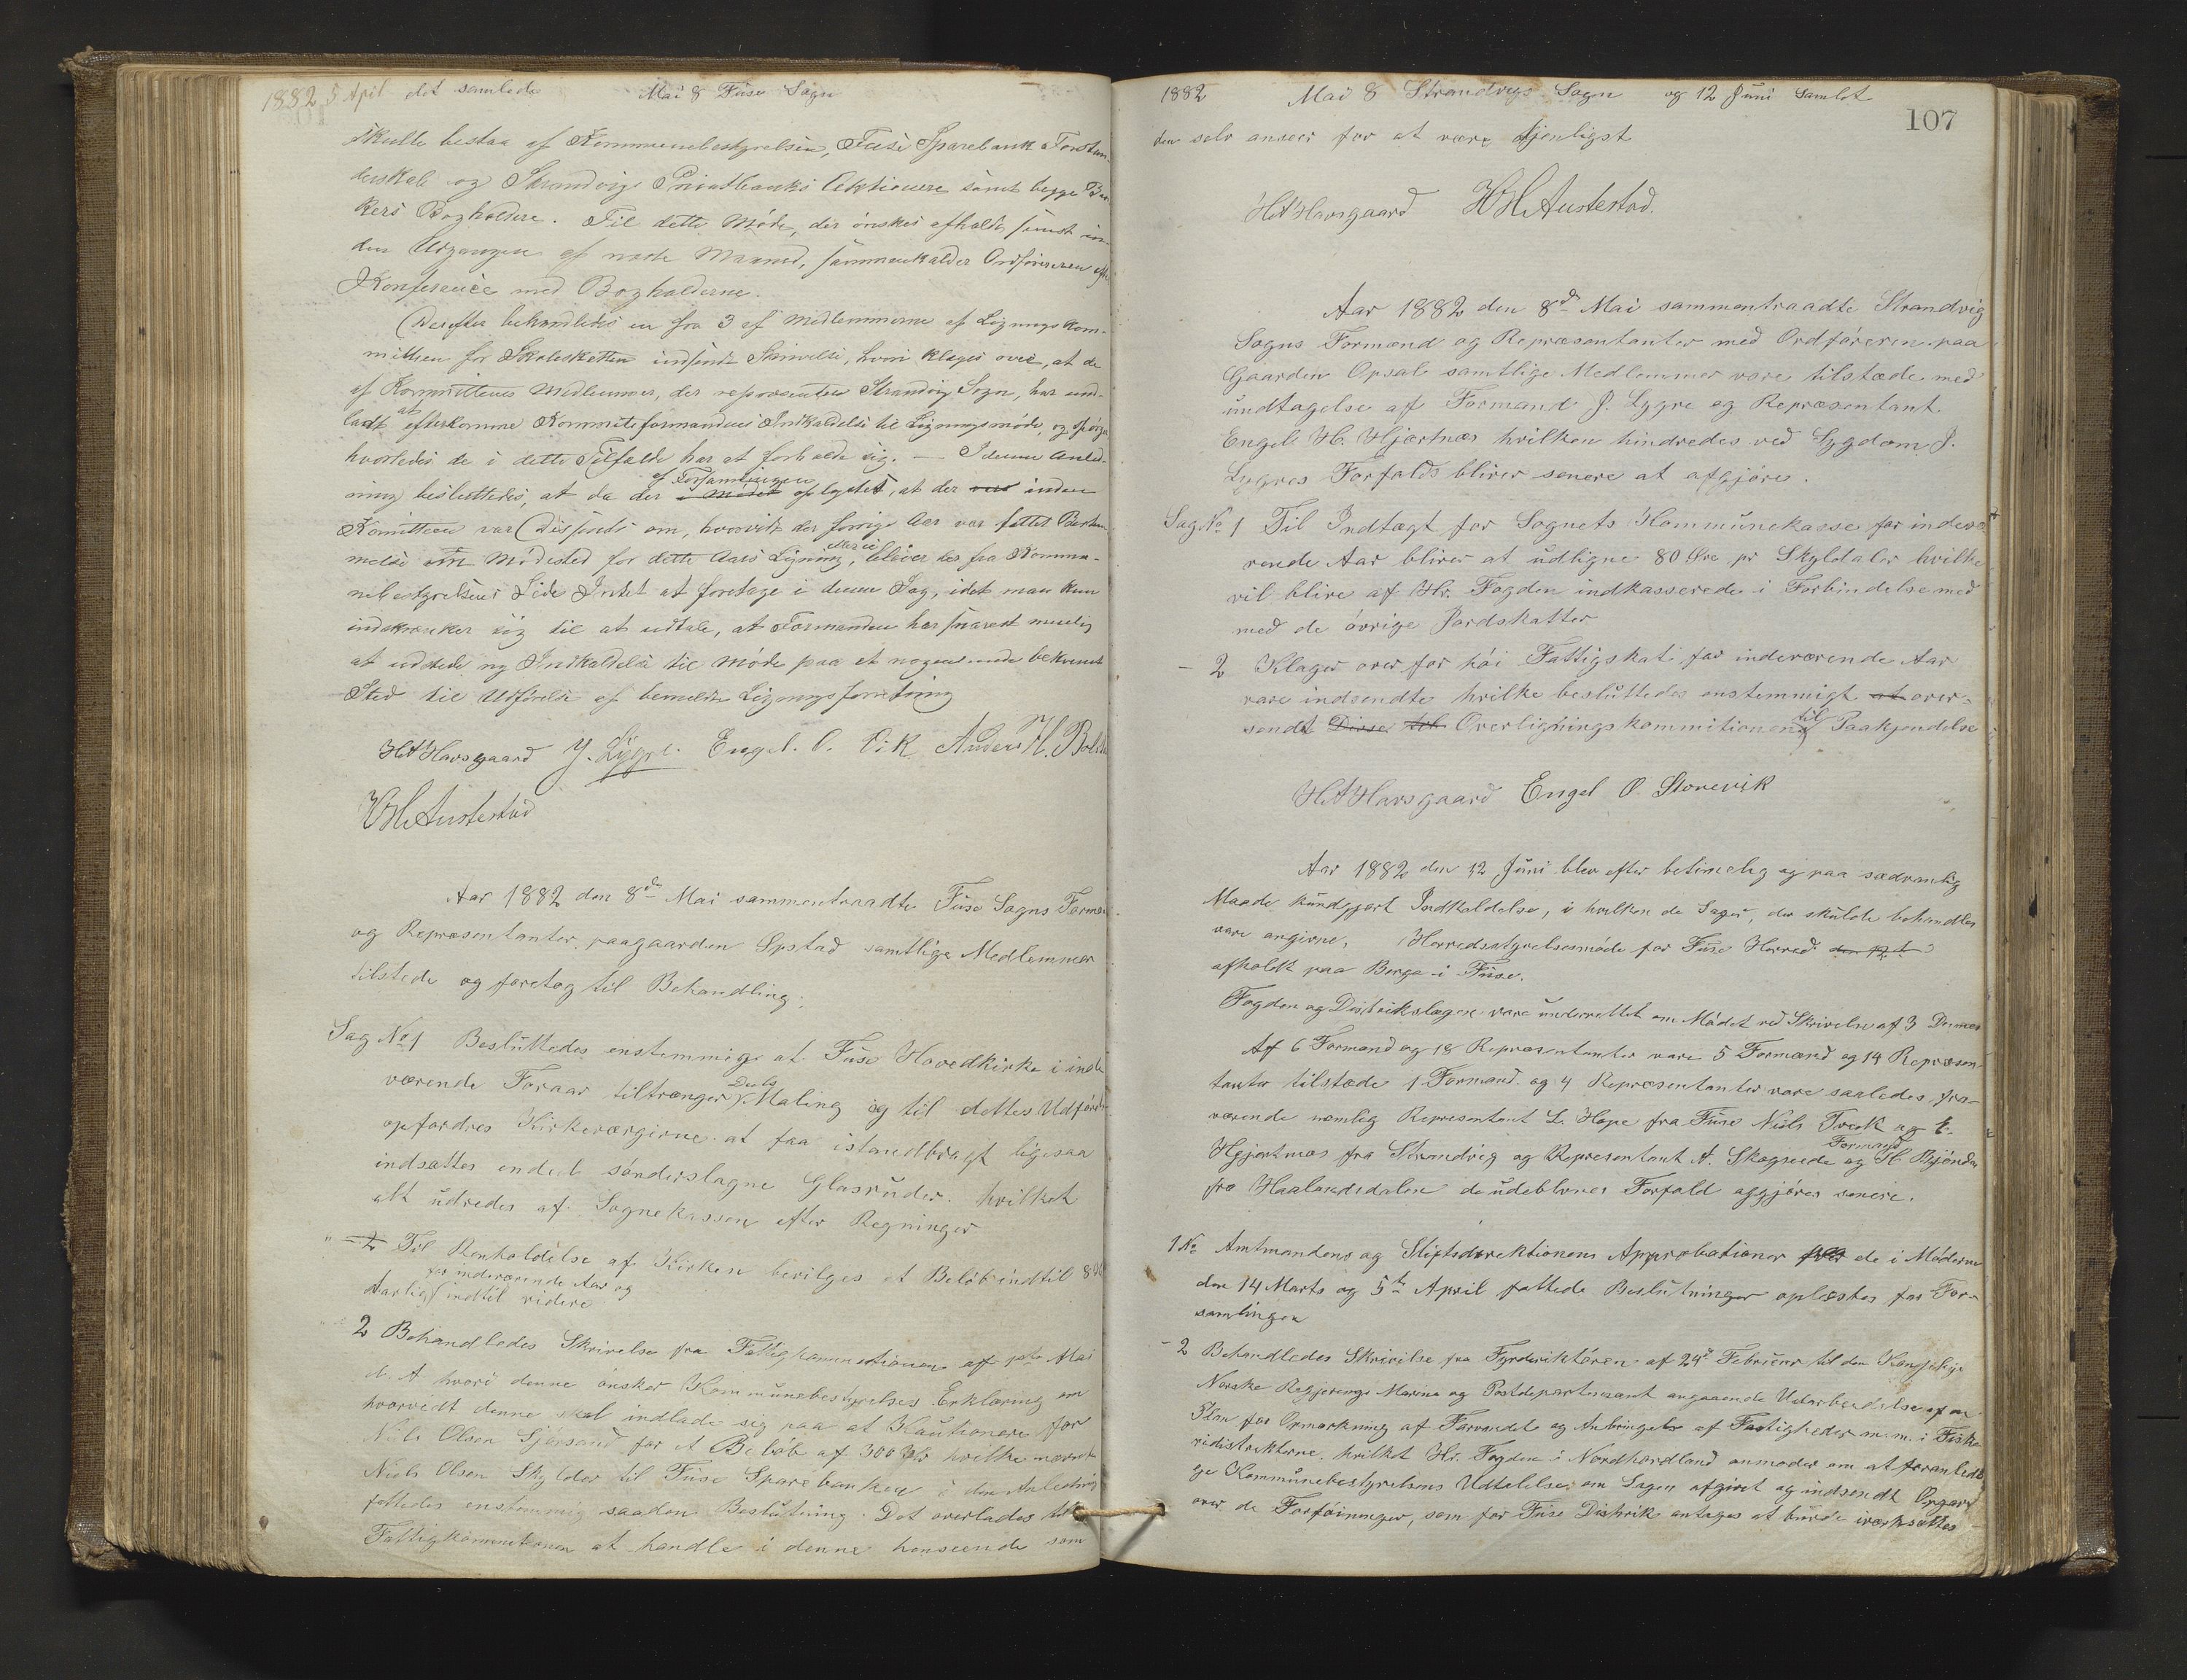 1882 5 April det samlede Mai 8 Fuse Sogn
skulle bestaa af Kommunebestyrelsen, Fuse Sparebanks Forstan-
derskab og Strandvigs Privatbanks Aktionere samt begge Ban-
kers Bogholdere. Til dette Møde, der ønskes afholdt senest in-
den Udgangen af næste Maaned, sammenkalder Ordføreren efter
Konference med Bogholderne.
Derefter behandledes en fra 3 af Medlemmerne af Ligningskom-
mitteen for Skoleskatten indsendt Skrivelse, hvori klages over, at de
af Kommitteens Medlemmer, der repræsenterer Strandvig Sogn, har und-
ladt at efterkomme Kommiteformandens Indkaldelse til Ligningsmøde, og spørges
hvorledes de i dette Tilfælde har at forholde sig. — I denne Anled-
ning besluttedes, at da der i Mødet af Forsamlingen oplystes, at der var inden
Komitteen var Dissents om, hvorvidt der forrige Aar var fattet Bestem-
melse om Mødested for dette Aars Ligning, bliver der fra Kommu-
nebestyrelsens Side Intet at foretage i denne Sag, idet man kun
indskrænker sig til at udtale, at Formanden har snarest muelig
at udstede ny Indkaldelse til Møde paa et nogenlunde bekvemt
Sted til Udførelse af bemeldte Ligningsforretning
HA Havsgaard J. Lygre. Engel. O. Vik Anders H. Bolst
HH Austestad
Aar 1882 den 8de Mai sammentraadte Fuse Sogns Formæn
og Repræsentanter paagaarden Opstad samtlige Medlemmer
tilstede og foretog til Behandling.
Sag No 1 Besluttedes enstemmigt at Fuse Hovedkirke i inde
værende Foraar tiltrænger Maling og til dettes Udførelse
opfordres Kirkeværgerne at faa istandbragt ligesaa
indsættes endel sønderslagne Glasruder. hvilket
alt udredes af Sognekassen efter Regninger
" - 2 Til Renholdelse af Kirken bevilges et Beløb indtil 8
for indeværende Aar og
Aarlig indtil videre
2 Behandledes Skrivelse fra Fattigkommitionen aff 1ste Mai
d. A hvori denne ønsker Kommunebestyrelses Erklæring om
hvorvidt denne skal indlade sig paa at Kautionere for
Niels Olsen Sjørsand for et Beløb af 300 Kr hvilke nævnte
Niels Olsen Skylder til Fuse Sparebanken i den Anledning
fattedes enstemmig saadan Beslutning. Det overlades til
Fattigkommitionen at handle i denne henseende som
1882 Mai 8 Strandvigs Sogn og 12 Juni Samlet
107
den selv anseer for at være tjenligst
HA Havsgaard HH Austestad.
Aar 1882 den 8de Mai sammentraadte Strandvig
Sogns Formænd og Repræsentanter med Ordføreren paa
Gaarden Opsal samtlige Medlemmer vare tilstæde med
undtagelse af Formand J. Lygre og Repræsentant
Engel H. Hjertnæs hvilken hindredes ved Sygdom J.
Lygres Forfalds bliver senere at afgjøre.
Sag No 1 Til Indtægt for Sognets Kommunekasse for indevæ
rende Aar bliver at udligne 80 Øre pr Skyldaler hvilke
vil blive af Hr. Fogden indkasserede i Forbindelse med
med de øvrige Jordskatter
- 2 Klager over for høi Fattigskat for indeværende Aar
vare indsendte hvilke besluttedes enstemmigt at over-
sendt Disse til Overligningskommitionen til Paakjendelse
HA Havsgaard Engel O. Storevik
Aar 1882 den 12 Juni blev efter betimelig og paa sædvanlig
Maade kundgjort Indkaldelse, i hvilken de Sager, der skulde behandles
vare angivne, Herredsstyrelsesmøde for Fuse Herred den 12te
afholdt paa Berge i Fuse.
Fogden og Distrikslægen vare underrettet om Mødet ved Skrivelse af 3 Dennes
Af 6 Formænd og 18 Repræsentanter vare 5 Formænd og 14 Repræsen-
tanter tilstæde 1 Formand og 4 Repræsentanter vare saaledes fra-
værende nemlig Repræsentant L. Hope fra Fuse Niels Tveit og E.
Hjertnæs fra Strandvig og Repræsentant A. Skogseide og Formand H Bjøndal
fra Haalandsdalen de udeblevnes Forfald afgjøres senere.
1 No Amtmandens og Stiftsdirektionens Approbationer paa de i Møderne
den 14 Marts og 5te April fattede Beslutninger oplæstes for For-
samlingen
- 2 Behandledes Skrivelse fra Fyrdirektøren af 24de Februar til den Kongelige
Norske Regjerings Marine og Postdepartement angaaende Udarbeidelse af en
Plan for Opmærkning af Farvandet og Anbringelse af Fæstigheder m.m. i Fiske
ridistrikterne. hvilket Hr. Fogden i Nordhordland anmoder om at foranledi
ge Kommunebestyrelsens Udtalelse om Sagen afgivet og indsendt Opgave
over de Forføininger, som for Fuse Distrik antages at burde iværksættes